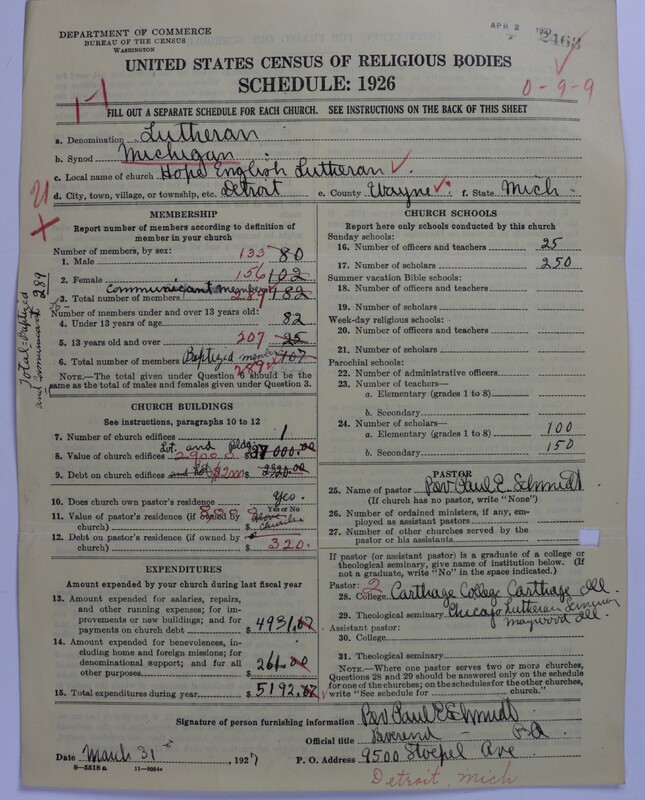 DEPARTMENT OF COMMERCE
BUREAU OF THE CENSUS
WASHINGTON
APR 2
2463
UNITED STATES CENSUS OF RELIGIOUS BODIES
SCHEDULE: 1926
0-9-9
1-1
FILL OUT A SEPARATE SCHEDULE FOR EACH CHURCH. SEE INSTRUCTIONS ON THE BACK OF THIS SHEET
a. Denomination Lutheran
b. Synod Michigan
c. Local name of church Hope English Lutheran
d. City, town, village, or township, etc. Detroit e. County Wayne f. State Mich.
MEMBERSHIP
Report number of members according to definition of member in your church
Number of members, by sex:
1. Male 133 80
2. Female 156 102
Communicant members
3. Total number of members 289 182
Number of members under and over 13 years old:
4. Under 13 years of age 82
5. 13 years old and over 207 25
6. Total number of members Baptized 107
289
NOTE.—The total given under Question 6 should be the same as the total of males and females given under Question 3.
Total Baptized and communicant 289
CHURCH BUILDINGS
See instructions, paragraphs 10 to 12
7. Number of church edifices 1
Lot and Bldg.
8. Value of church edifices 29000
9. Debt on church edifices and lot
10. Does church own pastor's residence Yes.
Yes or No
11. Value of pastor's residence (if owned by church) above
12. Debt on pastor's residence (if owned by church) $ 320.
EXPENDITURES
Amount expended by your church during last fiscal year
13. Amount expended for salaries, repairs, and other running expenses; for improvements or new buildings; and for payments on church debt $ 4931.
14. Amount expended for benevolences, including home and foreign missions; for denominational support; and for all other purposes $ 261.00
15. Total expenditures during year $ 5192.
CHURCH SCHOOLS
Report here only schools conducted by this church
Sunday schools:
16. Number of officers and teachers 25
17. Number of scholars 250
Summer vacation Bible schools:
18. Number of officers and teachers
19. Number of scholars
Week-day religious schools:
20. Number of officers and teachers
21. Number of scholars
Parochial schools:
22. Number of administrative officers
23. Number of teachers—
a. Elementary (grades 1 to 8)
b. Secondary
24. Number of scholars—
a. Elementary (grades 1 to 8) 100
b. Secondary 150
PASTOR
25. Name of pastor Rev Paul E. Schmidt
(If church has no pastor, write "None")
26. Number of ordained ministers, if any, employed as assistant pastors
27. Number of other churches served by the pastor or his assistants
If pastor (or assistant pastor) is a graduate of a college or theological seminary, give name of institution below. (If not a graduate, write "No" in the space indicated.)
Pastor: 2
28. College Carthage College Carthage Ill.
29. Theological seminary Chicago Lutheran Seminary
Maywood Ill.
Assistant pastor:
30. College
31. Theological seminary
NOTE.—Where one pastor serves two or more churches, Questions 28 and 29 should be answered only on the schedule for one of the churches; on the schedules for the other churches, write "See schedule for church."
Signature of person furnishing information Rev Paul E Schmidt
Official title Reverend
Date March 31, 1927 P. O. Address 9500 Stoepel Ave
Detroit, Mich
8—5518 a